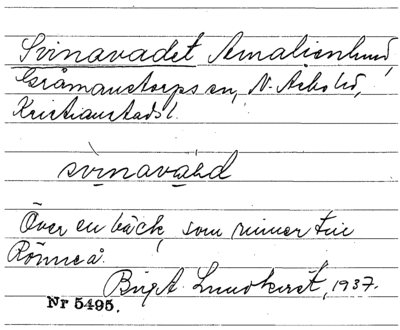 Svinavadet Amalienlund,
Gråmanstorps sn, N. Åsbo hd,
Kristianstads l.
svinavaəd
Över en bäck, som rinner till
Rönneå.
Birgit Lundkvist, 1937.
Nr 5495.